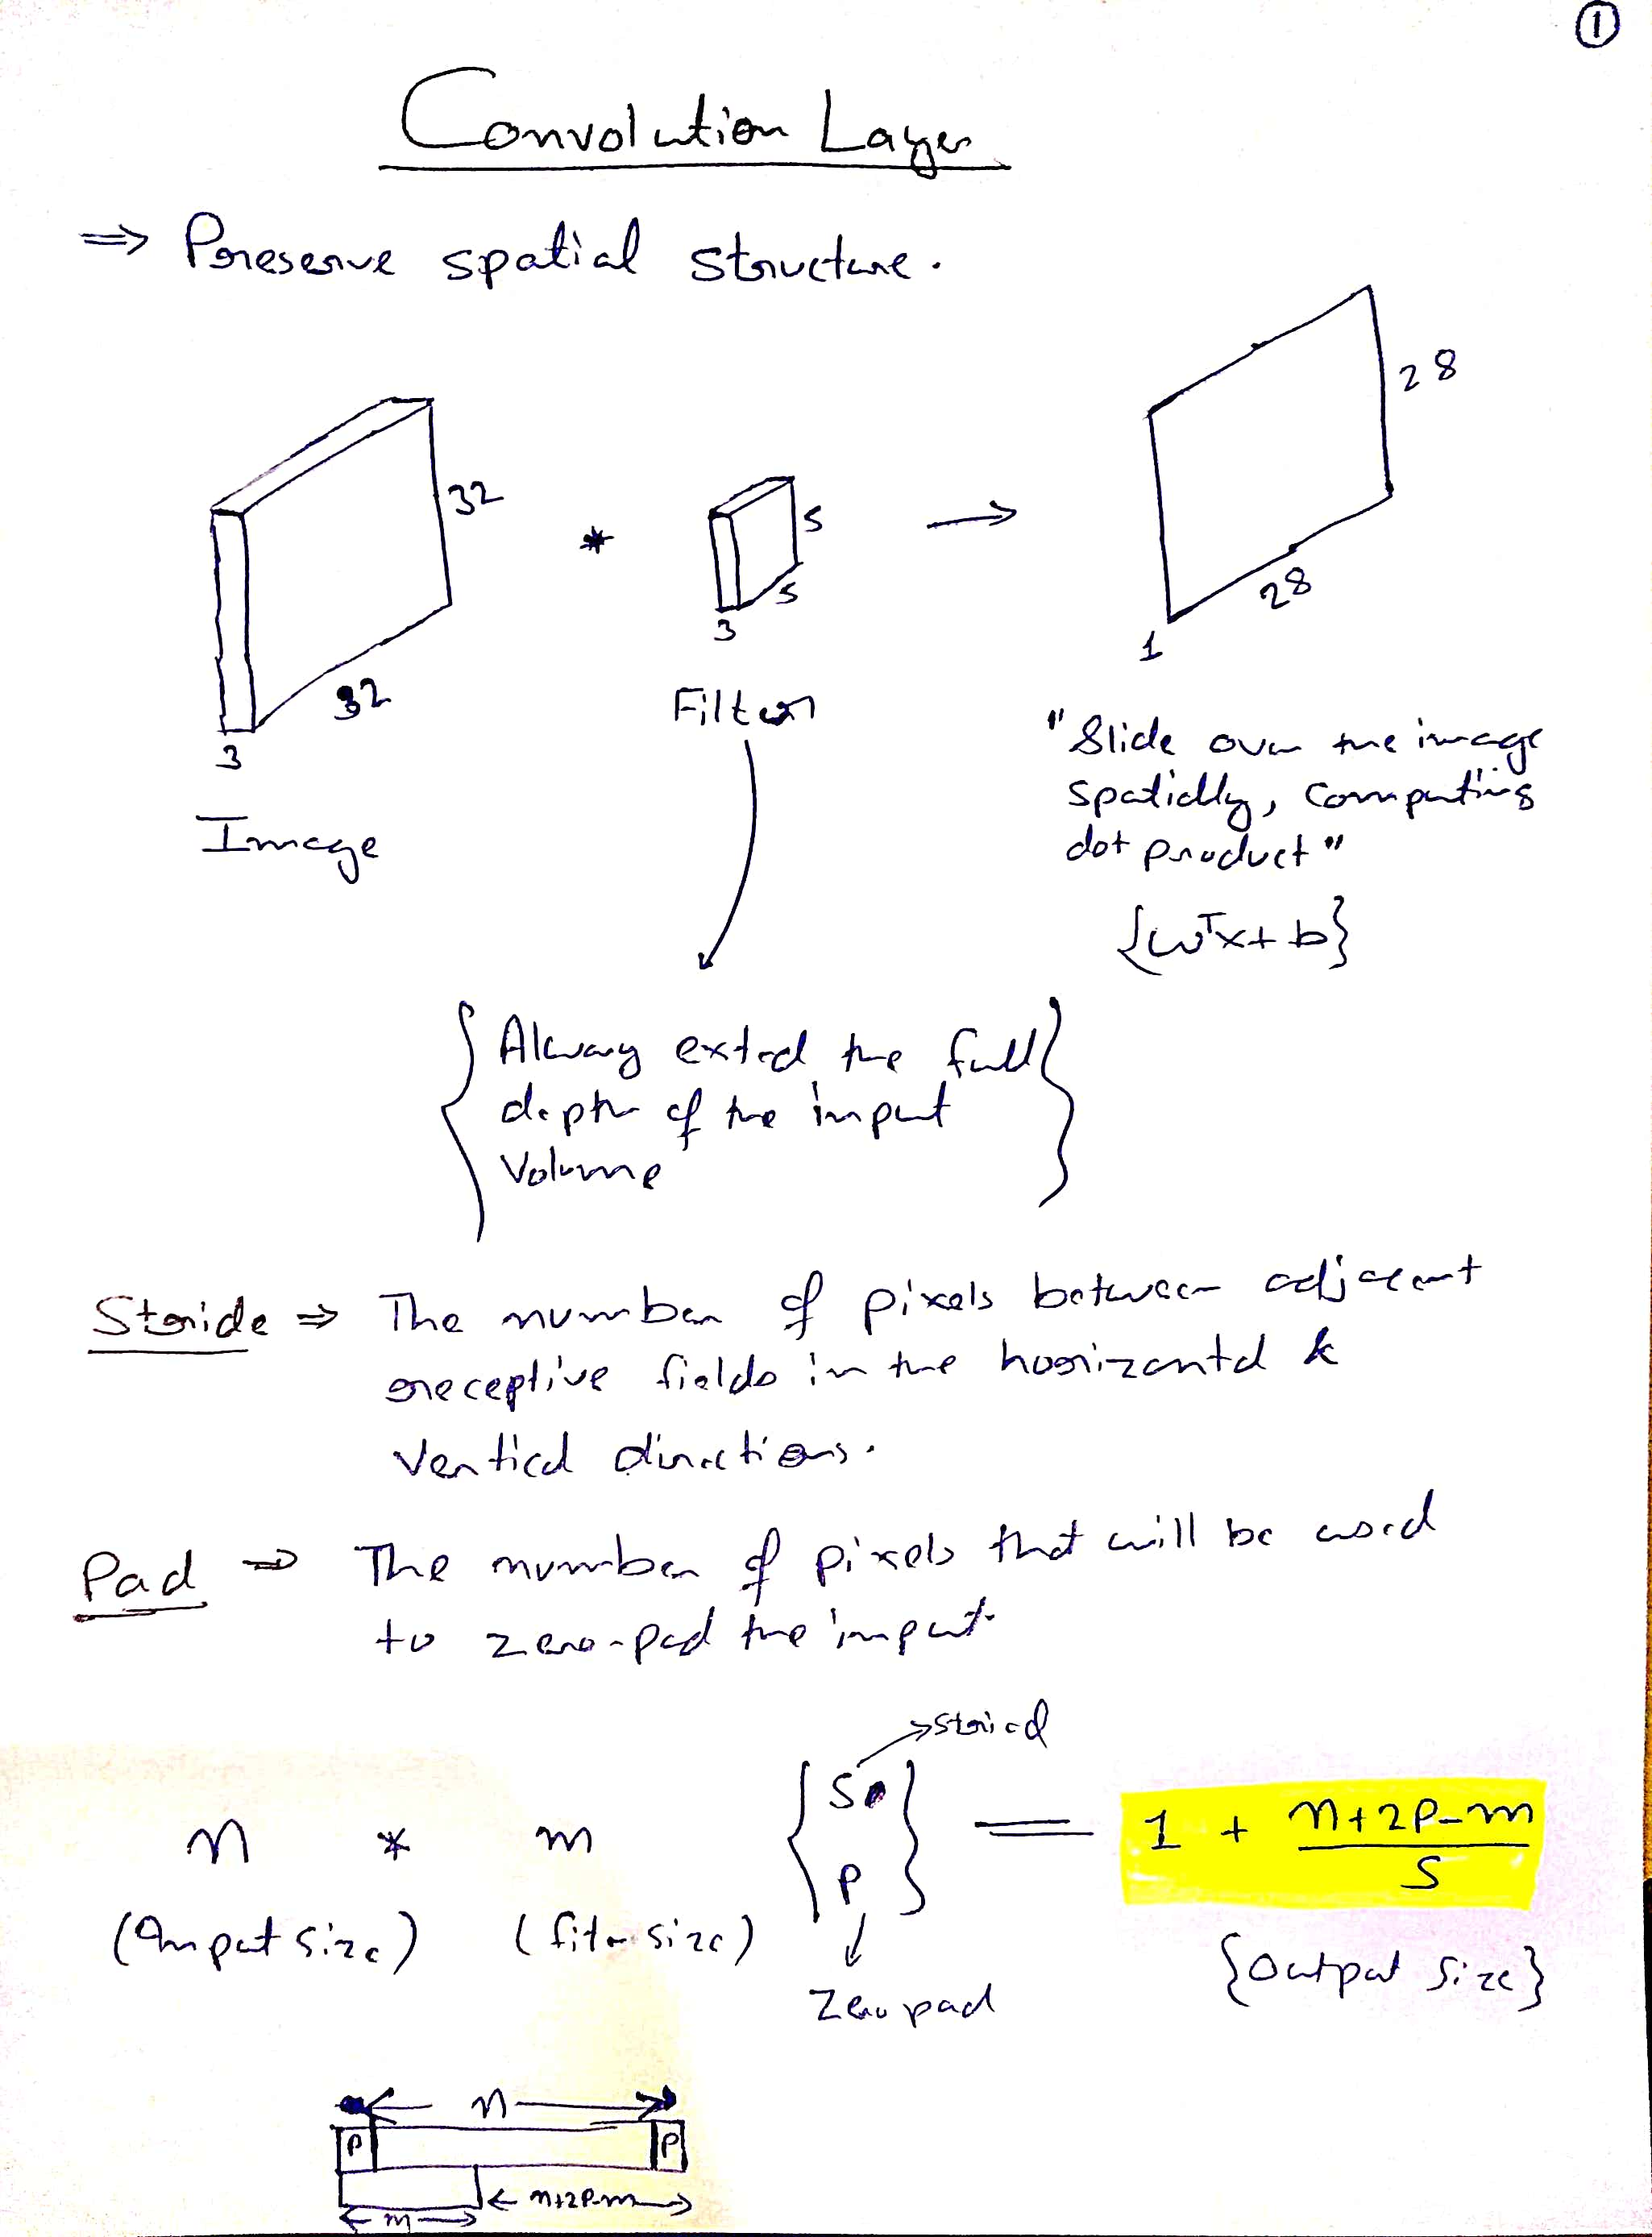 1
Convolution Layer
⇒ Preserve spatial structure.
28
32
*
5
→
5
28
3
1
32
Filter
3
"Slide over the image
spatially, computing
dot product"
Image
{wᵀx + b}
Alway exted the full
depth of the input
Volume
Stride ⇒ The number of pixels between adjacent
receptive fields in the horizontal &
vertical directions.
Pad ⇒ The number of pixels that will be used
to zero-pad the input.
→ stried
n * m { S P } = 1 + (n+2P-m)/S
(Input size) (filter size)
Zero pad
{Output size}
n
P P
n+2P-m
m